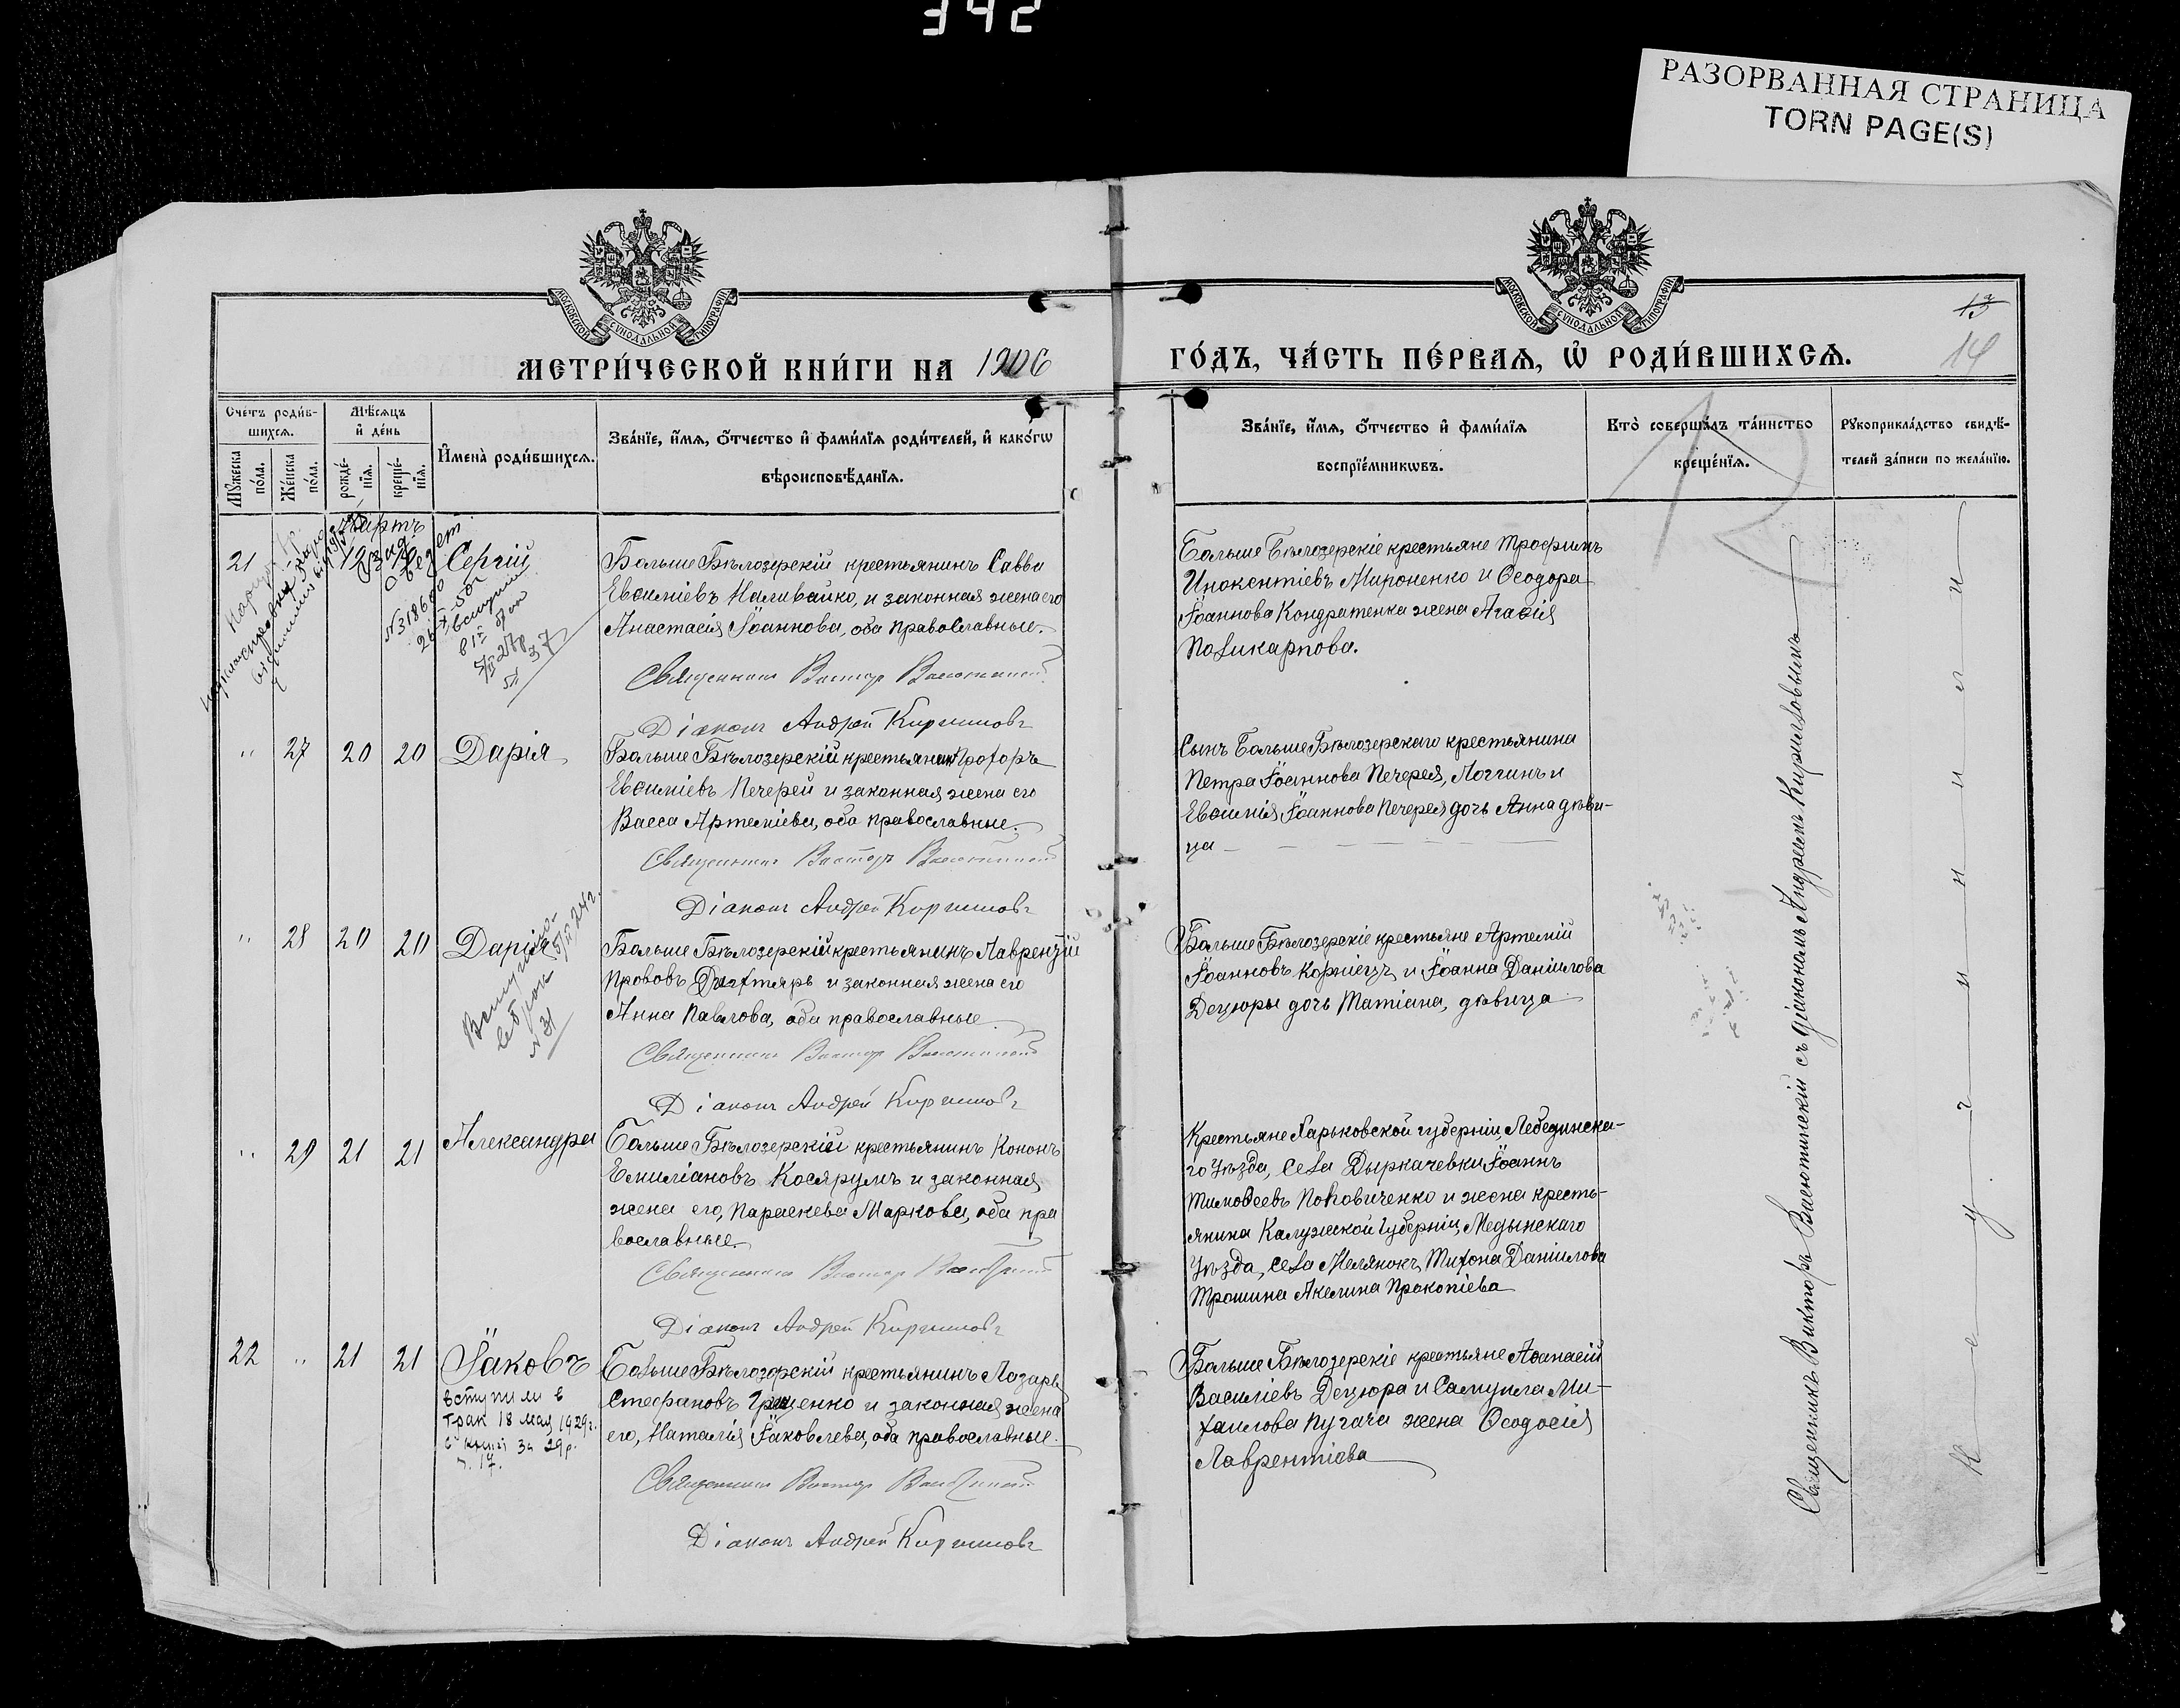 342
РАЗОРВАННАЯ СТРАНИЦА
TORN PAGE(S)
МОСКОВСКОЙ СУНОДАЛЬНОЙ ТИПОГРАФІИ
МОСКОВСКОЙ СУНОДАЛЬНОЙ ТИПОГРАФІИ
13
14
МЕТРИ́ЧЕСКОЙ КНИ́ГИ НА 1906
ГО́ДЪ, ЧА́СТЬ ПЕ́РВАѦ, Ѡ҆ РОДИ́ВШИХСѦ.
Сче́тъ роди́в-
шихсѧ.
Мѣ́сѧцъ
и҆ де́нь
Мꙋ́жеска
по́ла.
Же́нска
по́ла.
рожде́-
нїѧ.
креще́-
нїѧ.
И҆мена̀ роди́вшихсѧ.
Зва́нїе, и҆́мѧ, ѻ҆́тчество и҆ фами́лїѧ роди́телей, и҆ како́гѡ
вѣроисповѣ́данїѧ.
Зва́нїе, и҆́мѧ, ѻ҆́тчество и҆ фами́лїѧ
воспрїе́мникѡвъ.
Кто̀ соверша́лъ та́инство
креще́нїѧ.
Рꙋкоприкла́дство свидѣ́-
телей за́писи по жела́нїю.
12
Мартъ
21 19 19 Сергій
Больше Бѣлозерскій крестьянинъ Савва
Евѳиміевъ Наливайко, и законная жена его
Анастасія Іоаннова, оба православные.
Священникъ Виктор
Діаконъ Андрей Кирилловъ
Больше Бѣлозерскіе крестьяне Трофимъ
Инокентіевъ Мироненко и Ѳеодора
Іоаннова Кондратенка жена Агаѳія
Поликарпова.
" 27 20 20 Дарія
Больше Бѣлозерскій крестьянинъ Прохоръ
Евѳиміевъ Печерей и законная жена его
Васса Артеміева, оба православные.
Священникъ Виктор
Діаконъ Андрей Кирилловъ
Сынъ Больше Бѣлозерскаго крестьянина
Петра Іоаннова Печерея, Логгинъ и
Евѳимія Іоаннова Печерея дочь Анна дѣви-
ца
" 28 20 20 Дарія
31
Больше Бѣлозерскій крестьянинъ Лаврентій
Прововъ Дехтяръ и законная жена его
Анна Павлова, оба православные
Священникъ Виктор
Діаконъ Андрей Кирилловъ
Больше Бѣлозерскіе крестьяне Артемій
Іоанновъ Корніецъ и Іоанна Даніилова
Децюры дочь Татіана, дѣвица
" 29 21 21 Александра
Больше Бѣлозерскій крестьянинъ Кононъ
Емиліановъ Косярумъ и законная
жена его, Параскева Маркова, оба пра
вославные.
Священникъ Виктор
Діаконъ Андрей Кирилловъ
Крестьяне Харьковской губерніи, Лебединска-
го уѣзда, села Дыркачевки Іоаннъ
Тимоѳеевъ Поповиченко и жена кресть-
янина Калужской губерніи, Медынскаго
уѣзда, села Тихона Даніилова
Трошина Акелина Прокопіева
22 " 21 21 Іаковъ
вступили в
брак 18 мая 1929 г.
за 29 р.
17.
Больше Бѣлозерскій крестьянинъ Лазарь
Стефановъ Гриценко и законная жена
его, Наталія Іаковлева, оба православные.
Священникъ Виктор
Діаконъ Андрей Кирилловъ
Больше Бѣлозерскіе крестьяне Аѳанасій
Василіевъ Децюра и Самуила Ми-
хаилова Пугача жена Ѳеодосія
Лаврентіева
Священникъ Викторъ Васютинскій съ діакономъ Андреемъ Кирилловымъ